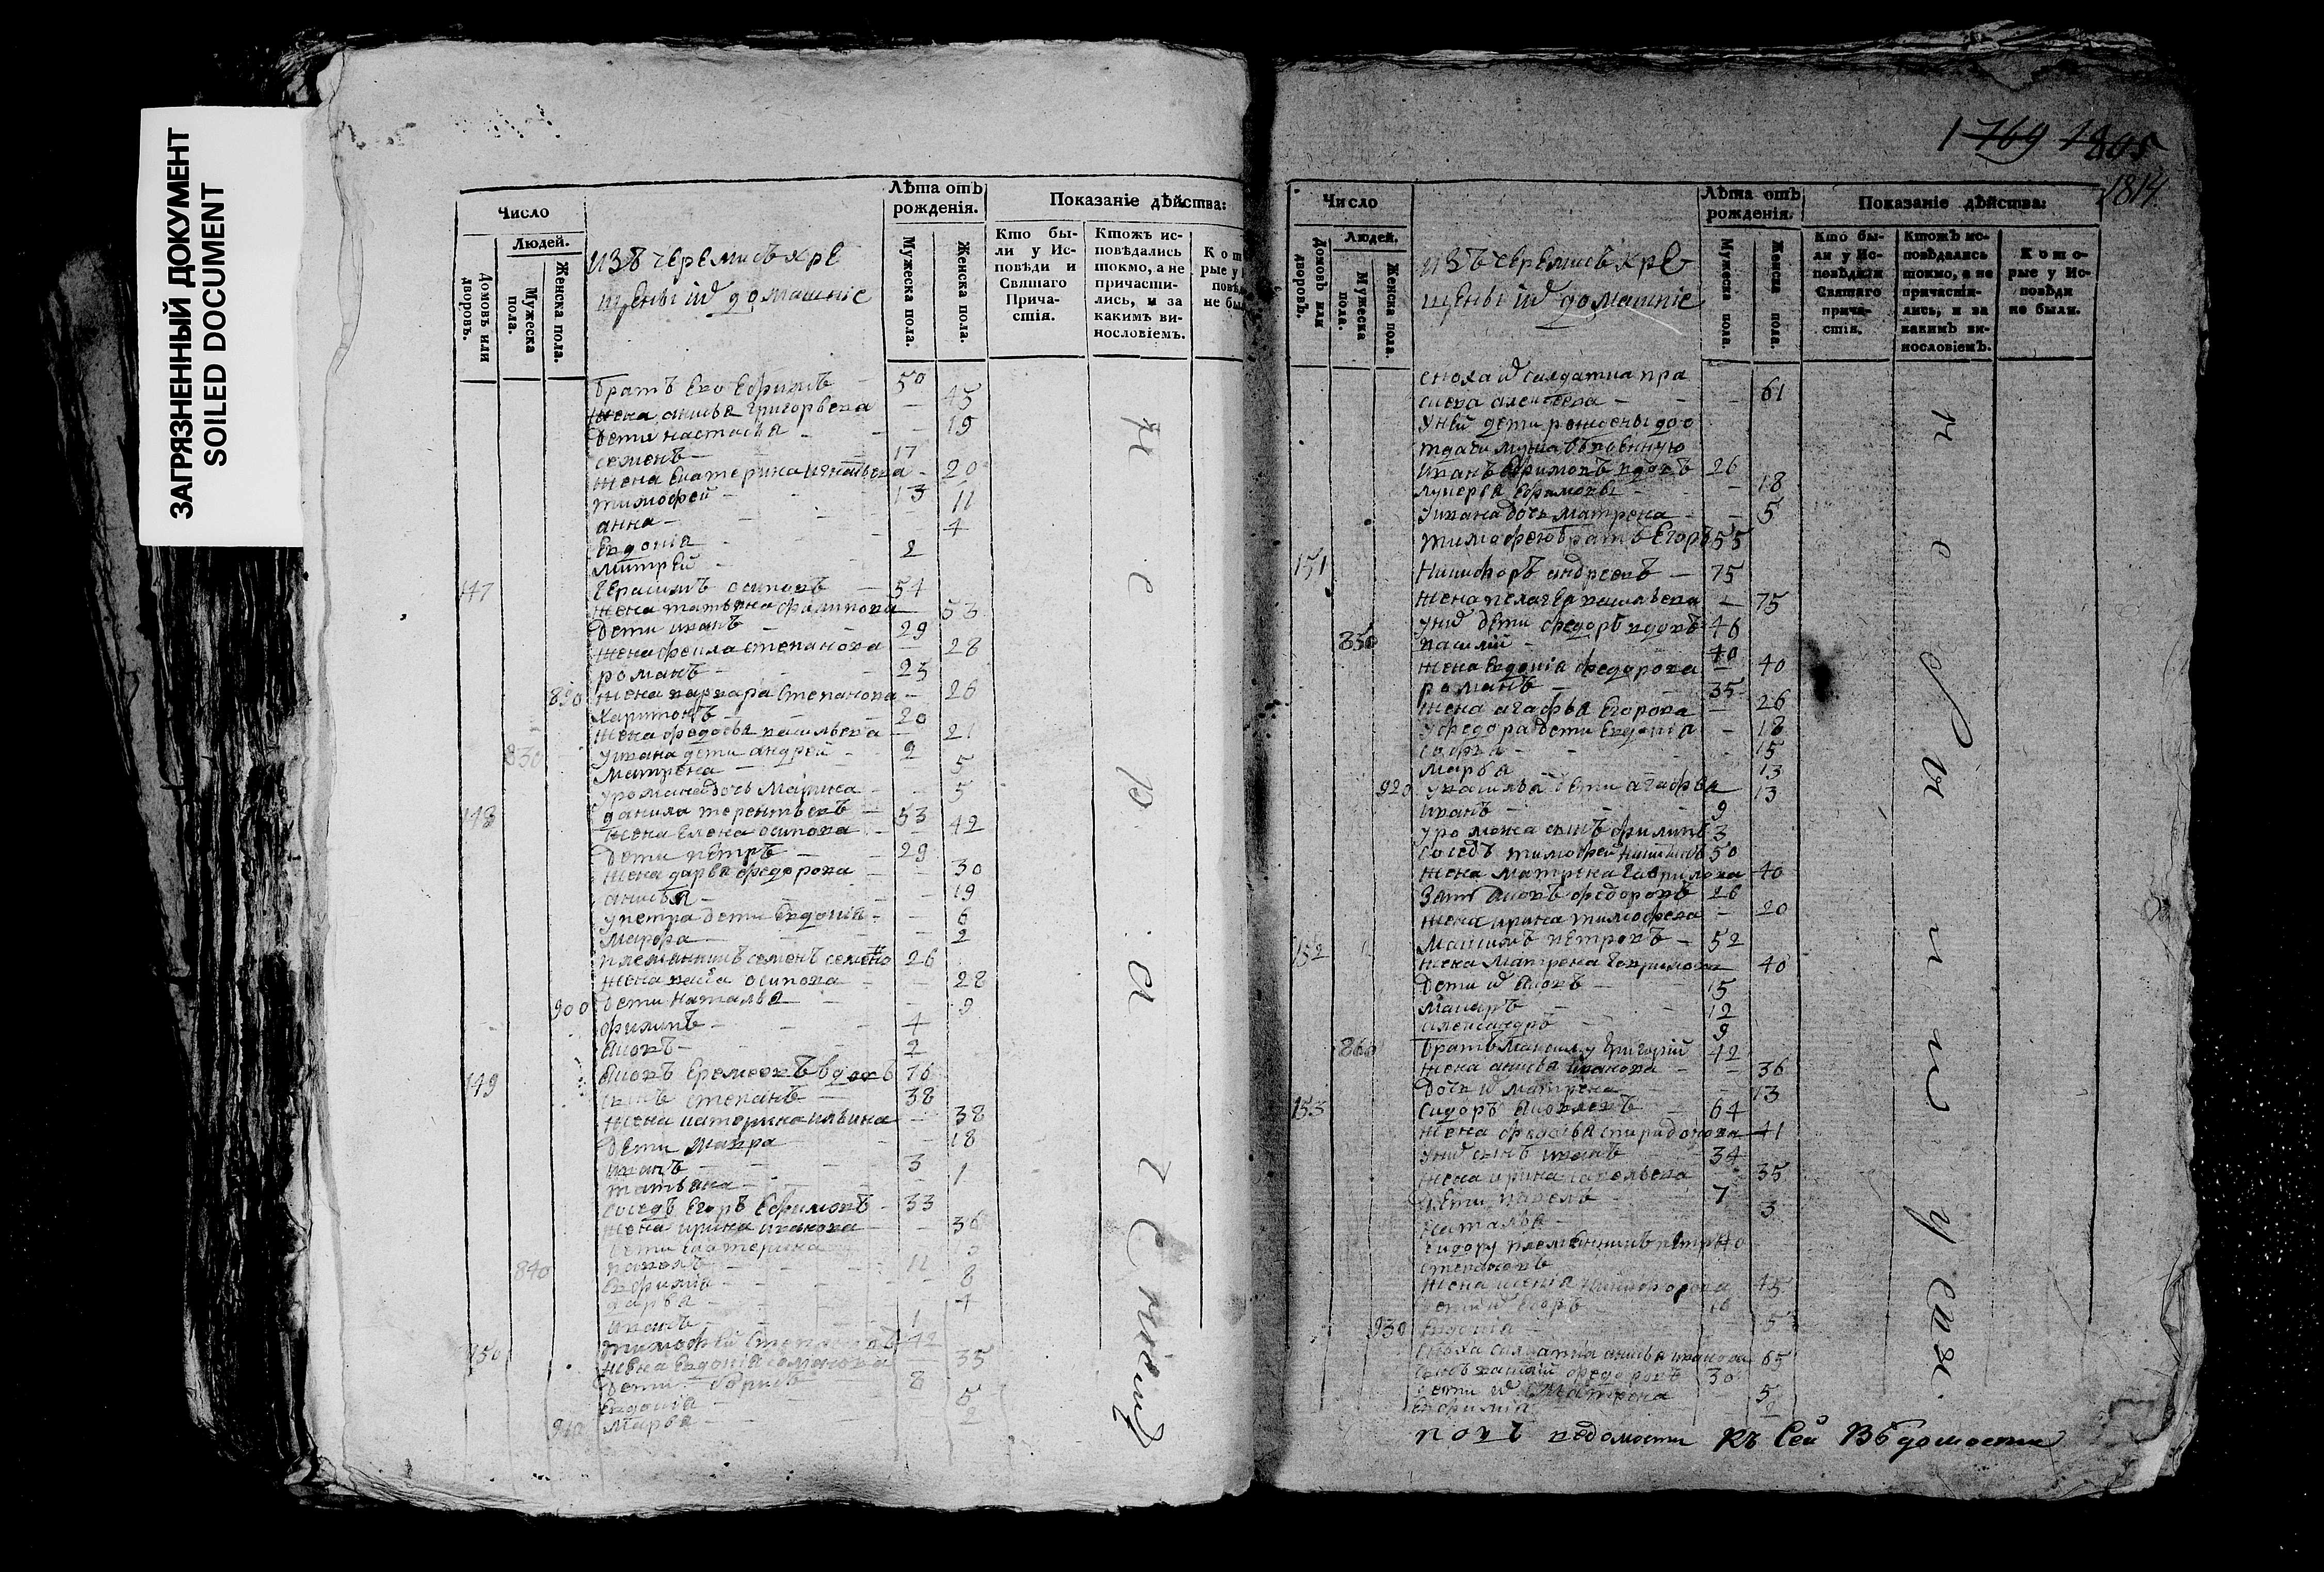 ЗАГРЯЗНЕННЫЙ ДОКУМЕНТ
SOILED DOCUMENT
Число
Людей.
Домовъ или дворовъ.
Мужеска пола.
Женска пола.
изъ черемисъ кре
щены иѿ домашніе
Лѣта отъ рожденія.
Мужеска пола.
Женска пола.
Показаніе дѣйства:
Кто бы-
ли у Ис-
повѣди и
Святаго
Прича-
стія.
Ктожъ ис-
повѣдались
токмо, а не
причасти-
лись, и за
какимъ ви-
нословіемъ.
братъ ево Ефимъ 50
жена анисья григорьева 45
дети настасья 19
семенъ 17
жена Екатерина игнатьева 20
тимофей 13
анна 11
Евдокія 4
митрей 2
147 Герасимъ осиповъ 54
жена татьяна филипова 53
дети иванъ 29
жена феклa степанова 28
романъ 25
890 жена варвара степанова 26
харитонъ 20
жена федосья васильева 21
830 у ивана дети андрей 2
матрена 5
у романа дочь Марина 5
148 данила терентьевъ 53
жена Елена осипова 42
дети петръ 29
жена дарья федорова 30
анисья 19
у петра дети Евдокія 6
марфа 2
племянникъ семенъ семено 26
жена васса осипова 28
900 дети наталья 9
филипъ 4
яковъ 2
149 яковъ Еремеевъ вдовъ 76
сынъ степанъ 38
жена катерина ильина 38
дети мавра 18
иванъ 3
татьяна 1
соседъ Егоръ Ефимовъ 33
жена ирина иванова 36
дети Екатерина
840 11
Ефимія 8
дарья 4
иванъ 1
150 тимофей степановъ 42
жена Евдокія романова 35
дети борисъ 8
Евдокія 5
910 марья 2
1769 1805
1814
Число
Людей.
Домовъ или дворовъ.
Мужеска пола.
Женска пола.
изъ черемисъ кре
щены иѿ домашніе
Лѣта отъ рожденія.
Мужеска пола.
Женска пола.
Показаніе дѣйства:
Кто бы-
ли у Ис-
повѣди и
Святаго
прича-
стія.
Ктожъ ис-
повѣдались
токмо, а не
причасти-
лись, и за
какимъ ви-
нословіемъ.
Кото-
рые у Ис-
повѣди
не были.
сноха иѿ салдатка пра
сковa алексеева 61
у ней дети рождены доо
тдачи мужа въ военную
иванъ Ефимовъ вдовъ 26
лукерья Ефимова 18
у ивана дочь матрена 5
тимофею братъ Егоръ 55
151 Никифоръ андреевъ 75
жена пелагея васильева 75
у нихъ дети федоръ вдовъ 46
850 василій 40
жена Евдокія федорова 40
романъ 35
жена агафья Егорова 26
у федора дети Евдокія 18
софья 15
марья 13
920 у василья дети агафья 13
иванъ 9
у романа сынъ филипъ 3
соседъ тимофей никитинъ 50
жена матрена гаврилова 40
зять яковъ федоровъ 26
жена ирина тимофеева 20
152 Максимъ петровъ 52
жена матрена гаврилова 40
дети иѿ яковъ 15
макаръ 12
александръ 9
860 братъ максиму григорій 42
жена анисья иванова 36
дочь иѿ матрена 13
153 сидоръ яковлевъ 64
жена федосья спиридонова 41
у нихъ сынъ иванъ 34
жена ирина савельева 35
дети павелъ 7
наталья 3
сидору племянникъ петръ 40
степановъ
жена ксенія никифорова 45
дети иѿ Егоръ 10
930 Евдокія 5
сноха салдатка анисья иванова 65
сынъ василій федоровъ 30
дети иѿ матрена 5
Ефимія 2
ведомости къ сей вѣдомости